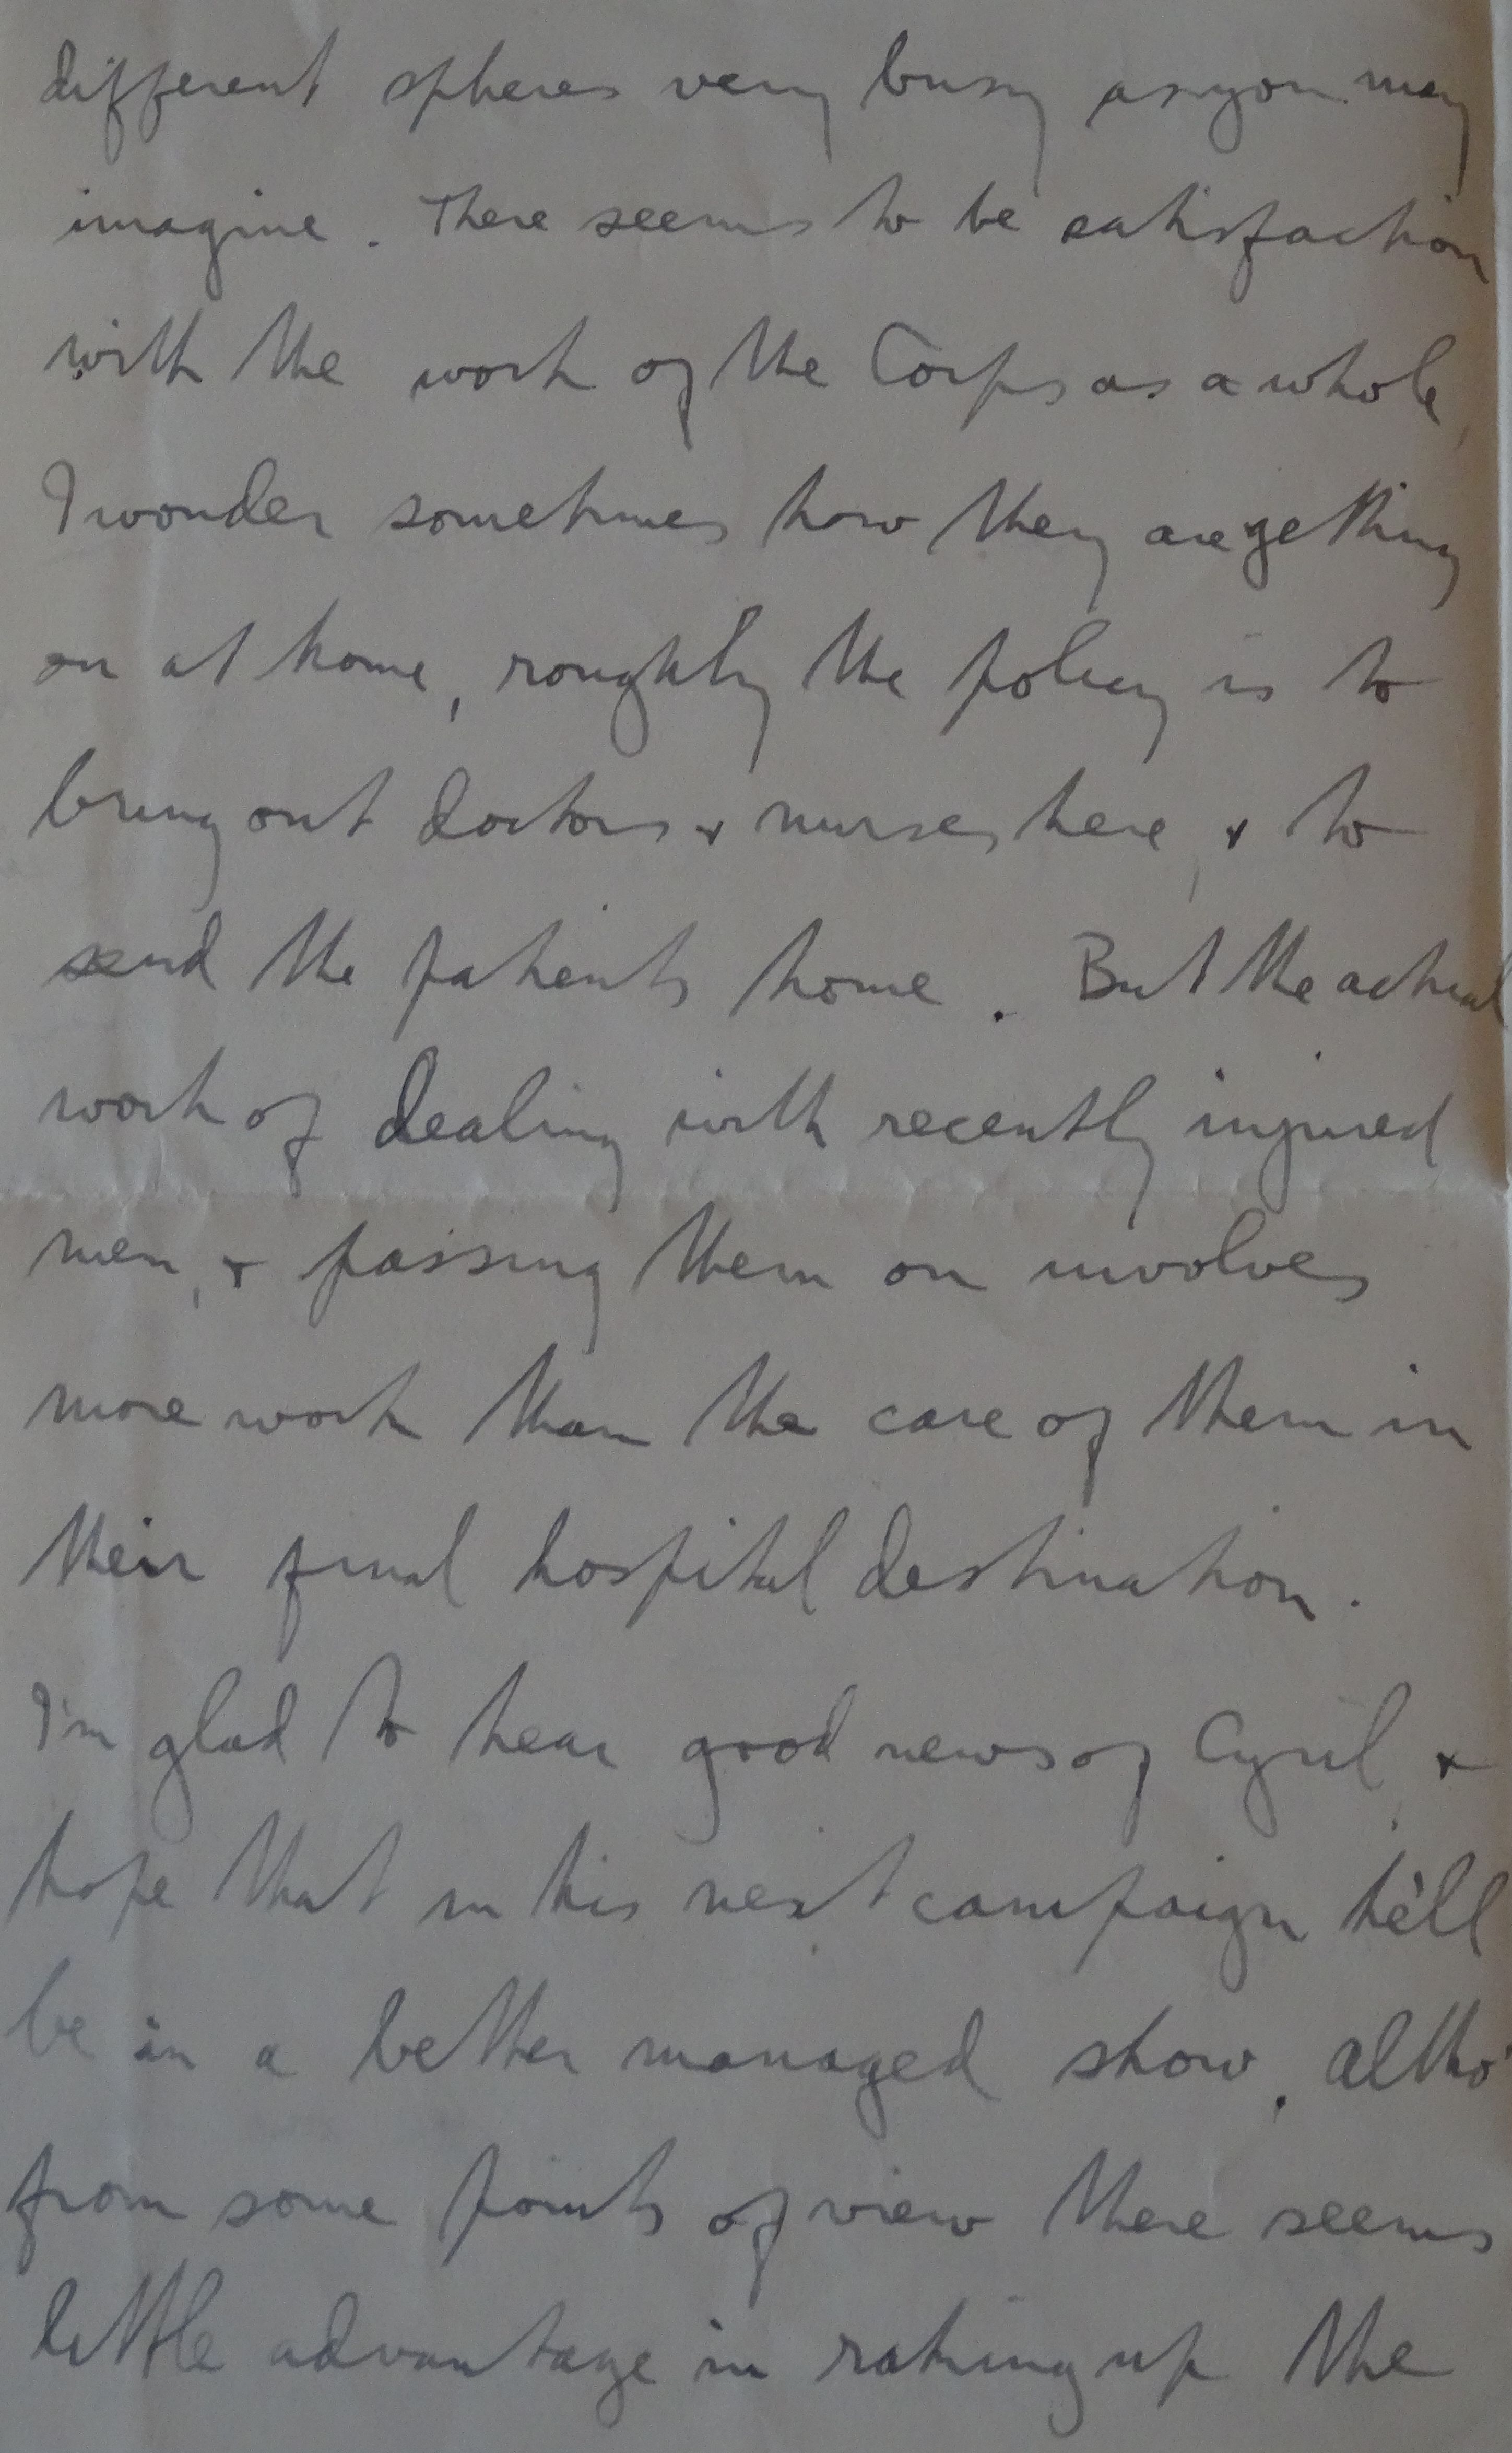 different spheres very busy as you may
imagine. There seems to be satisfaction
with the work of the Corps as a whole,
I wonder sometimes how they are getting
on at home, roughly the policy is to
bring out doctors & nurses here, & to
send the patients home. But the actual
work of dealing with recently injured
men, & passing them on involves
more work than the care of them in
their final hospital destination.
I'm glad to hear good news of Cyril, &
hope that in his next campaign he'll
be in a better managed show, altho'
from some points of view there seems
little advantage in raking up the